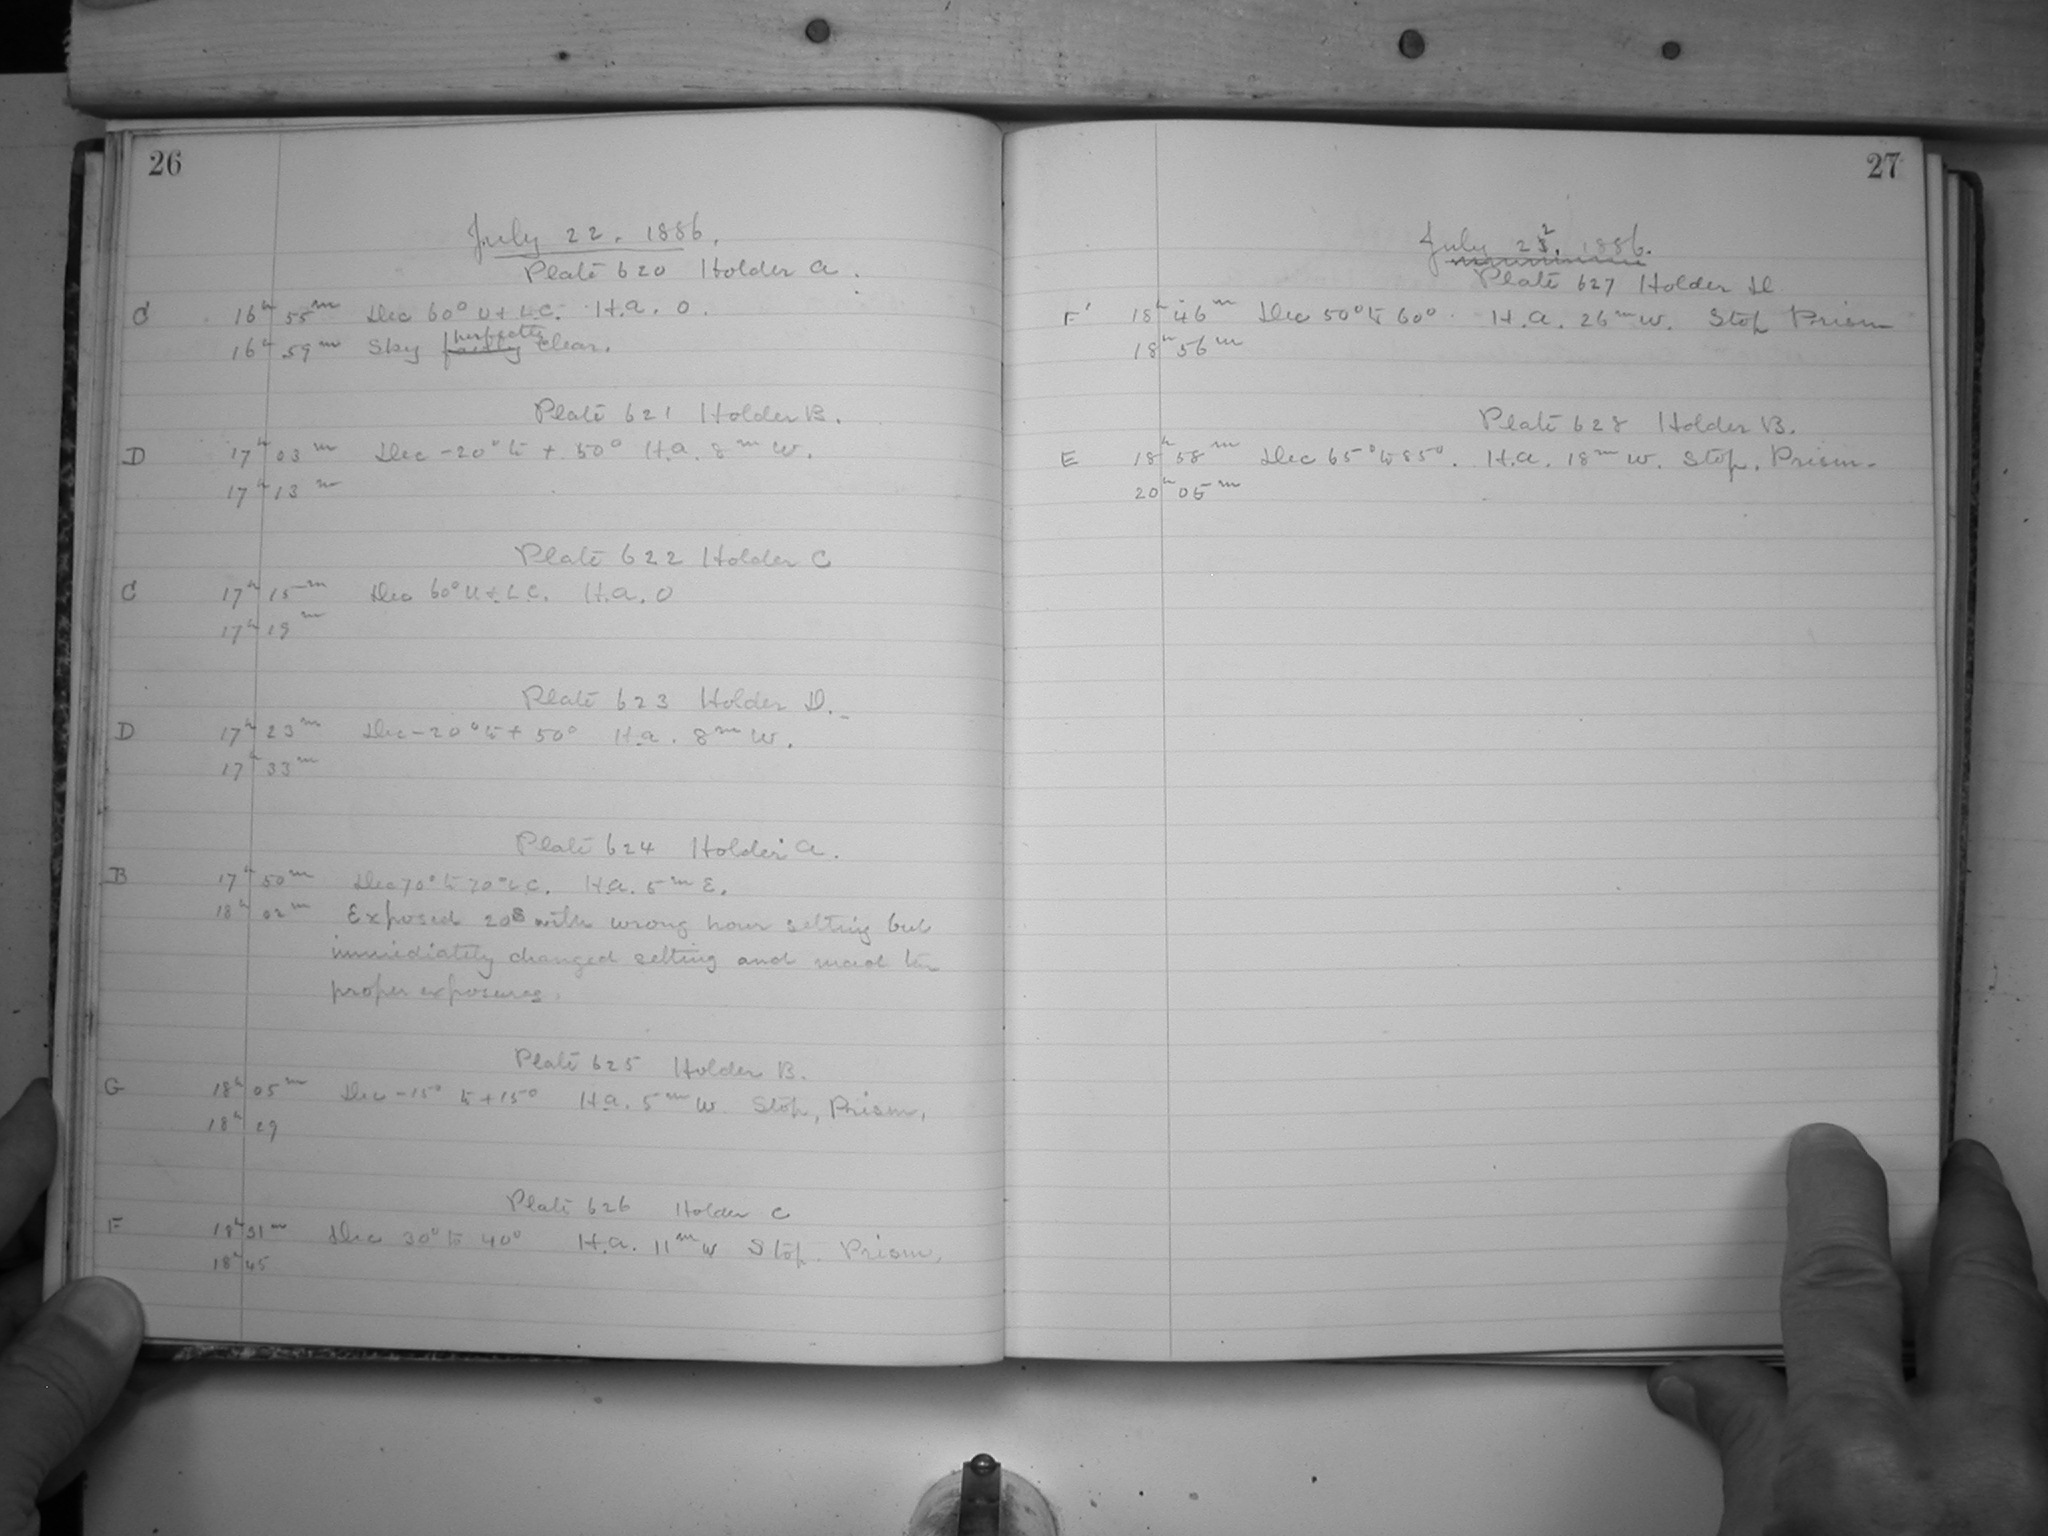 26
July 22. 1886.
Plate 620 Holder A.
C 16h 55m Dec 60° U + L.C. H.A. 0.
16h 59m Sky fairly perfectly clear.
Plate 621 Holder B.
D 17h 03m Dec -20° to + 50° H.A. 8m W.
17h 13m
Plate 622 Holder C
C 17h 15m Dec 60° U + L.C. H.A. 0
17h 19m
Plate 623 Holder D.
D 17h 23m Dec -20° to + 50° H.A. 8m W.
17h 33m
Plate 624 Holder A.
B 17h 50m Dec 70° to 70° L.C. H.A. 5m E.
18h 02m Exposed 20s with wrong hour setting but
immediately changed setting and made the
proper exposures.
Plate 625 Holder B.
G 18h 05m Dec -15° to +15° H.A. 5m W. Stop, Prism.
18h 29
Plate 626 Holder C
F 18h 31m Dec 30° to 40° H.A. 11m W Stop. Prism.
18h 45
27
July 22. 1886.
Plate 627 Holder D
F' 18h 46m Dec 50° to 60°. H.A. 26m W. Stop Prism
18h 56m
Plate 628 Holder B.
E 18h 58m Dec 65° to 85°. H.A. 18m W. Stop. Prism.
20h 05m